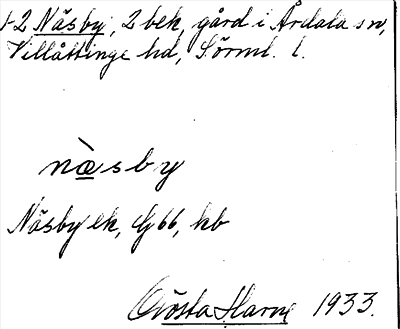 1-2 Näsby, 2 bek, gård i Årdala sn,
Villåttinge hd, Sörml. l.
næ̀sby
Näsby ek, G66, kb
Gösta Harne 1933.